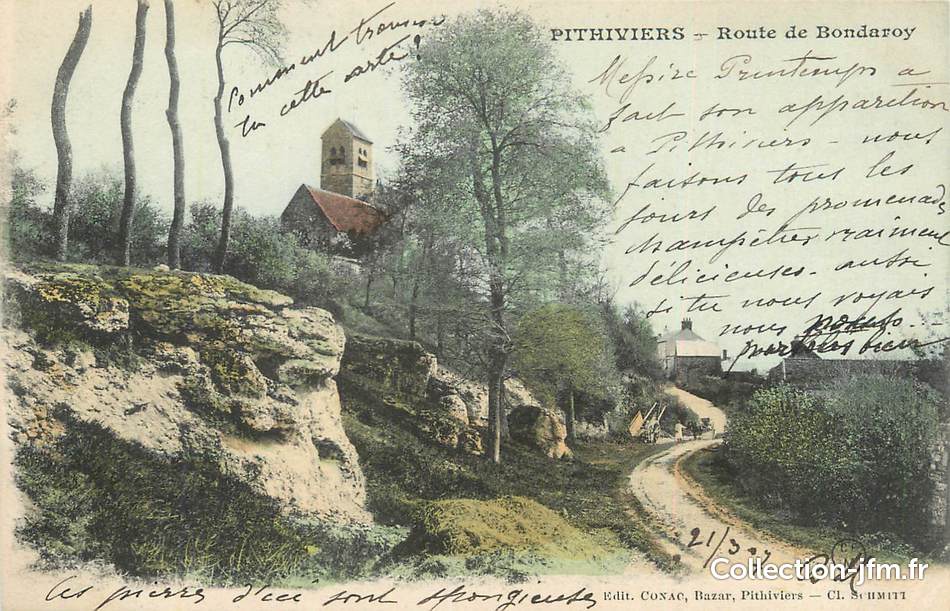 PITHIVIERS - Route de Bondaroy
Comment trouves
tu cette carte !
Messire Printemps a
fait son apparition
a Pithiviers - nous
faisons tous les
jours des promenades
champêtres vraiment
délicieuses - autre
si tu nous voyais
nous
partons bien
21/3 07
Les pierres d'ici sont spongieuses
Edit. CONAC, Bazar, Pithiviers - Cl. SCHMITT
www.Collection-jfm.fr